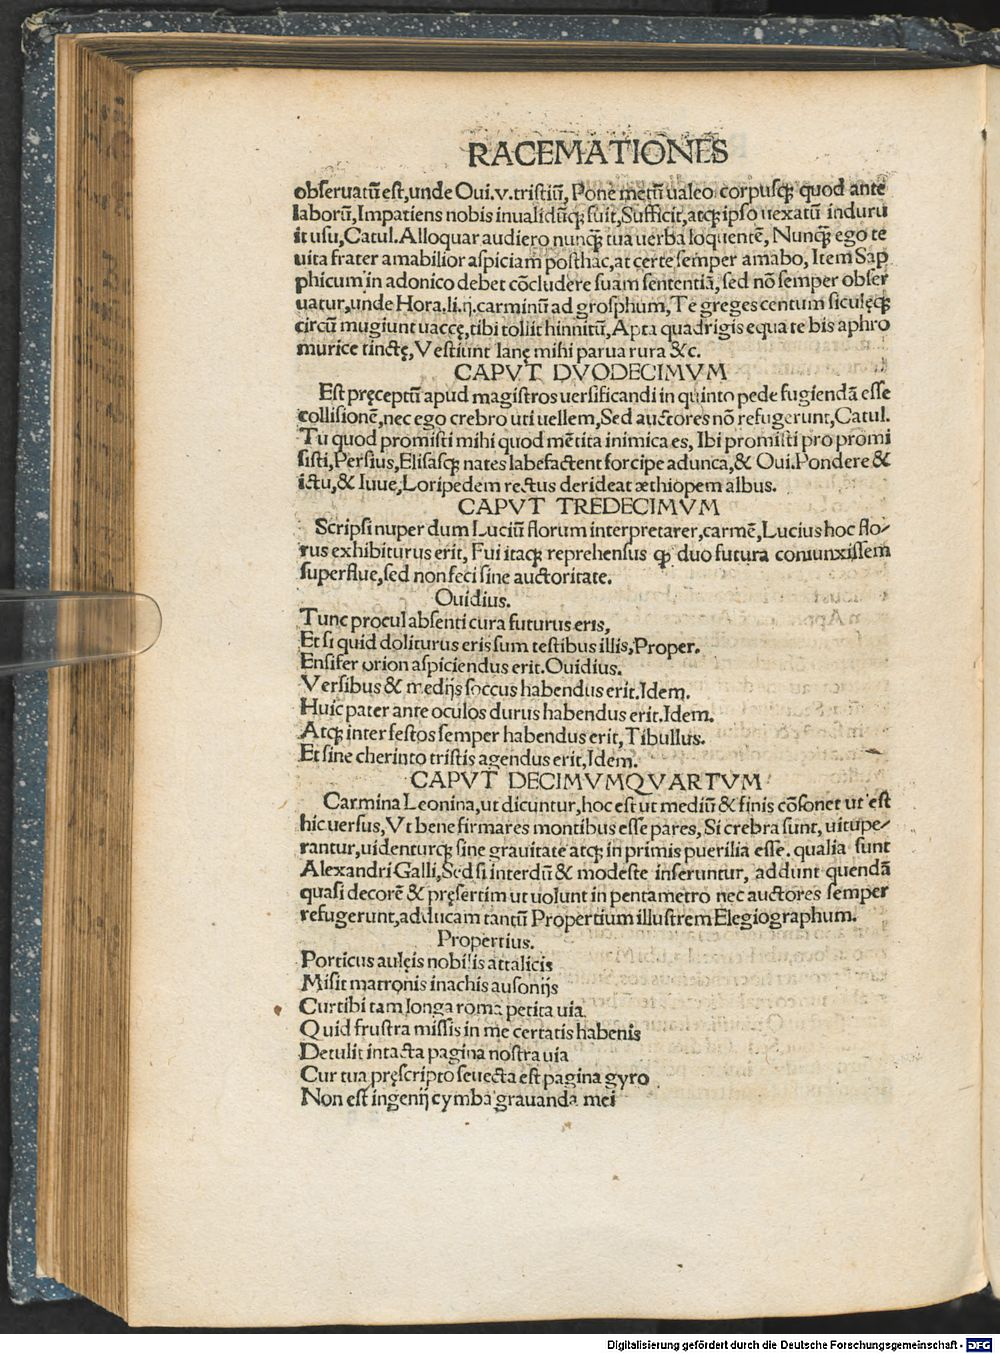 RACEMATIONES
obseruatū est, unde Oui. v. tristiū, Pone metū ualeo corpusqꝫ quod ante
laborū, Impatiens nobis inualidūqꝫ fuit, Sufficit, atqꝫ ipso uexatū induru
it usu, Catul. Alloquar audiero nunqꝫ̄ tua uerba loquentē, Nunqꝫ̄ ego te
uita frater amabilior aspiciam posthac, at certe semper amabo, Item Sap
phicum in adonico debet cōcludere suam sententiā, sed nō semper obser
uatur, unde Hora. li. ij. carminū ad grosphum, Te greges centum siculęqꝫ
circū mugiunt uaccę, tibi tollit hinnitū, Apta quadrigis equa te bis aphro
murice tinctę, Vestiunt lanę mihi parua rura &c.
CAPVT DVODECIMVM
Est pręceptū apud magistros uersificandi in quinto pede fugiendā esse
collisionē, nec ego crebro uti uellem, Sed auctores nō refugerunt, Catul.
Tu quod promisti mihi quod mētita inimica es, Ibi promisti pro promi
sisti, Persius, Elisasqꝫ nates labefactent forcipe adunca, & Oui. Pondere &
ictu, & Iuue, Loripedem rectus derideat æthiopem albus.
CAPVT TREDECIMVM
Scripsi nuper dum Luciū florum interpretarer, carmē, Lucius hoc flo/
rus exhibiturus erit, Fui itaqꝫ reprehensus qꝫ duo futura coniunxissem
superflue, sed non feci sine auctoritate.
Ouidius.
Tunc procul absenti cura futurus eris,
Et si quid doliturus eris sum testibus illis, Proper.
Ensifer orion aspiciendus erit. Ouidius.
Versibus & medijs soccus habendus erit. Idem.
Huic pater ante oculos durus habendus erit. Idem.
Atqꝫ inter festos semper habendus erit, Tibullus.
Et sine cherinto tristis agendus erit, Idem.
CAPVT DECIMVMQVARTVM
Carmina Leonina, ut dicuntur, hoc est ut mediū & finis cōsonet ut est
hic uersus, Vt bene firmares montibus esse pares, Si crebra sunt, uitupe/
rantur, uidenturqꝫ sine grauitate atqꝫ in primis puerilia esse. qualia sunt
Alexandri Galli, Sed si interdū & modeste inseruntur, addunt quendā
quasi decorē & pręsertim ut uolunt in pentametro nec auctores semper
refugerunt, adducam tantū Propertium illustrem Elegiographum.
Propertius.
Porticus aulęis nobilis attalicis
Misit matronis inachis ausonijs
Cur tibi tam longa roma petita uia.
Quid frustra missis in me certatis habenis
Detulit intacta pagina nostra uia
Cur tua pręscripto seuecta est pagina gyro
Non est ingenij cymba grauanda mei
Digitalisierung gefördert durch die Deutsche Forschungsgemeinschaft - DFG